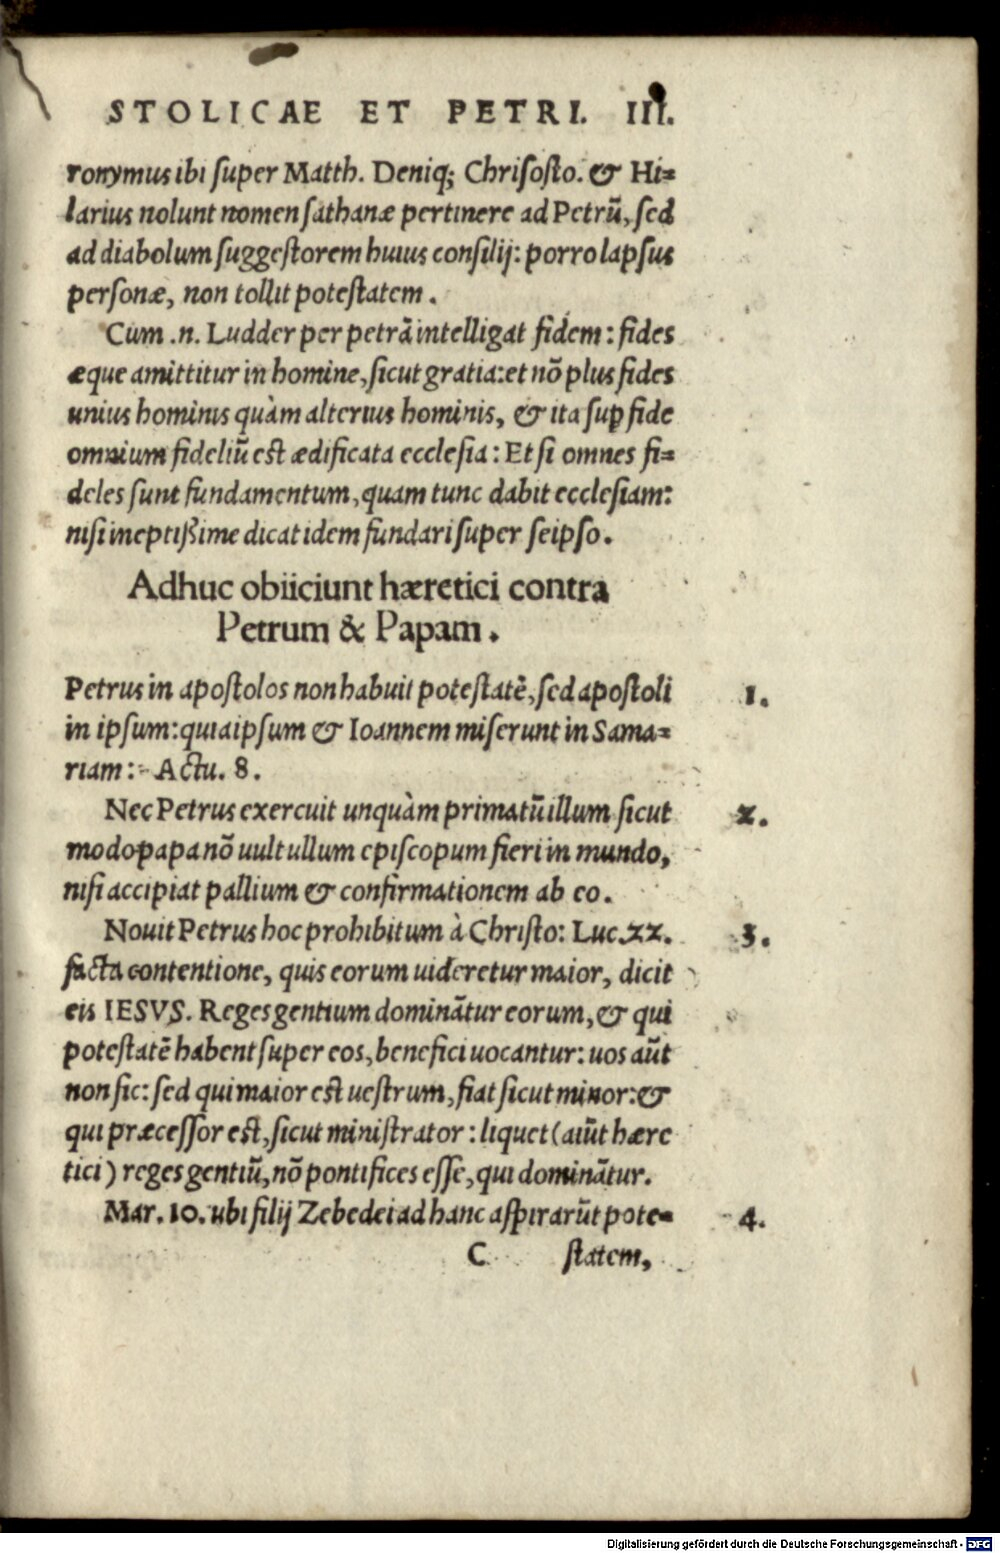 STOLICAE ET PETRI. III.
ronymus ibi super Matth. Deniq; Chrisosto. & Hi=
larius nolunt nomen sathanæ pertinere ad Petrũ, sed
ad diabolum suggestorem huius consilij: porro lapsus
personæ, non tollit potestatem.
Cum .n. Ludder per petrã intelligat fidem: fides
æque amittitur in homine, sicut gratia: et nõ plus fides
unius hominis quàm alterius hominis, & ita suꝑ fide
omnium fideliũ est ædificata ecclesia: Et si omnes fi=
deles sunt fundamentum, quam tunc dabit ecclesiam:
nisi ineptißime dicat idem fundari super seipso.
Adhuc obiiciunt hæretici contra
Petrum & Papam.
Petrus in apostolos non habuit potestatẽ, sed apostoli 1.
in ipsum: quia ipsum & Ioannem miserunt in Sama=
riam: Actu. 8.
Nec Petrus exercuit unquàm primatũ illum sicut 2.
modo papa nõ uult ullum episcopum fieri in mundo,
nisi accipiat pallium & confirmationem ab eo.
Nouit Petrus hoc prohibitum à Christo: Luc. 22. 3.
facta contentione, quis eorum uideretur maior, dicit
eis IESVS. Reges gentium dominãtur eorum, & qui
potestatẽ habent super eos, benefici uocantur: uos aũt
non sic: sed qui maior est uestrum, fiat sicut minor: &
qui præcessor est, sicut ministrator: liquet (aiũt hære
tici) reges gentiũ, nõ pontifices esse, qui dominãtur.
Mar. 10. ubi filij Zebedei ad hanc aspirarũt pote= 4.
C statem,
Digitalisierung gefördert durch die Deutsche Forschungsgemeinschaft - DFG